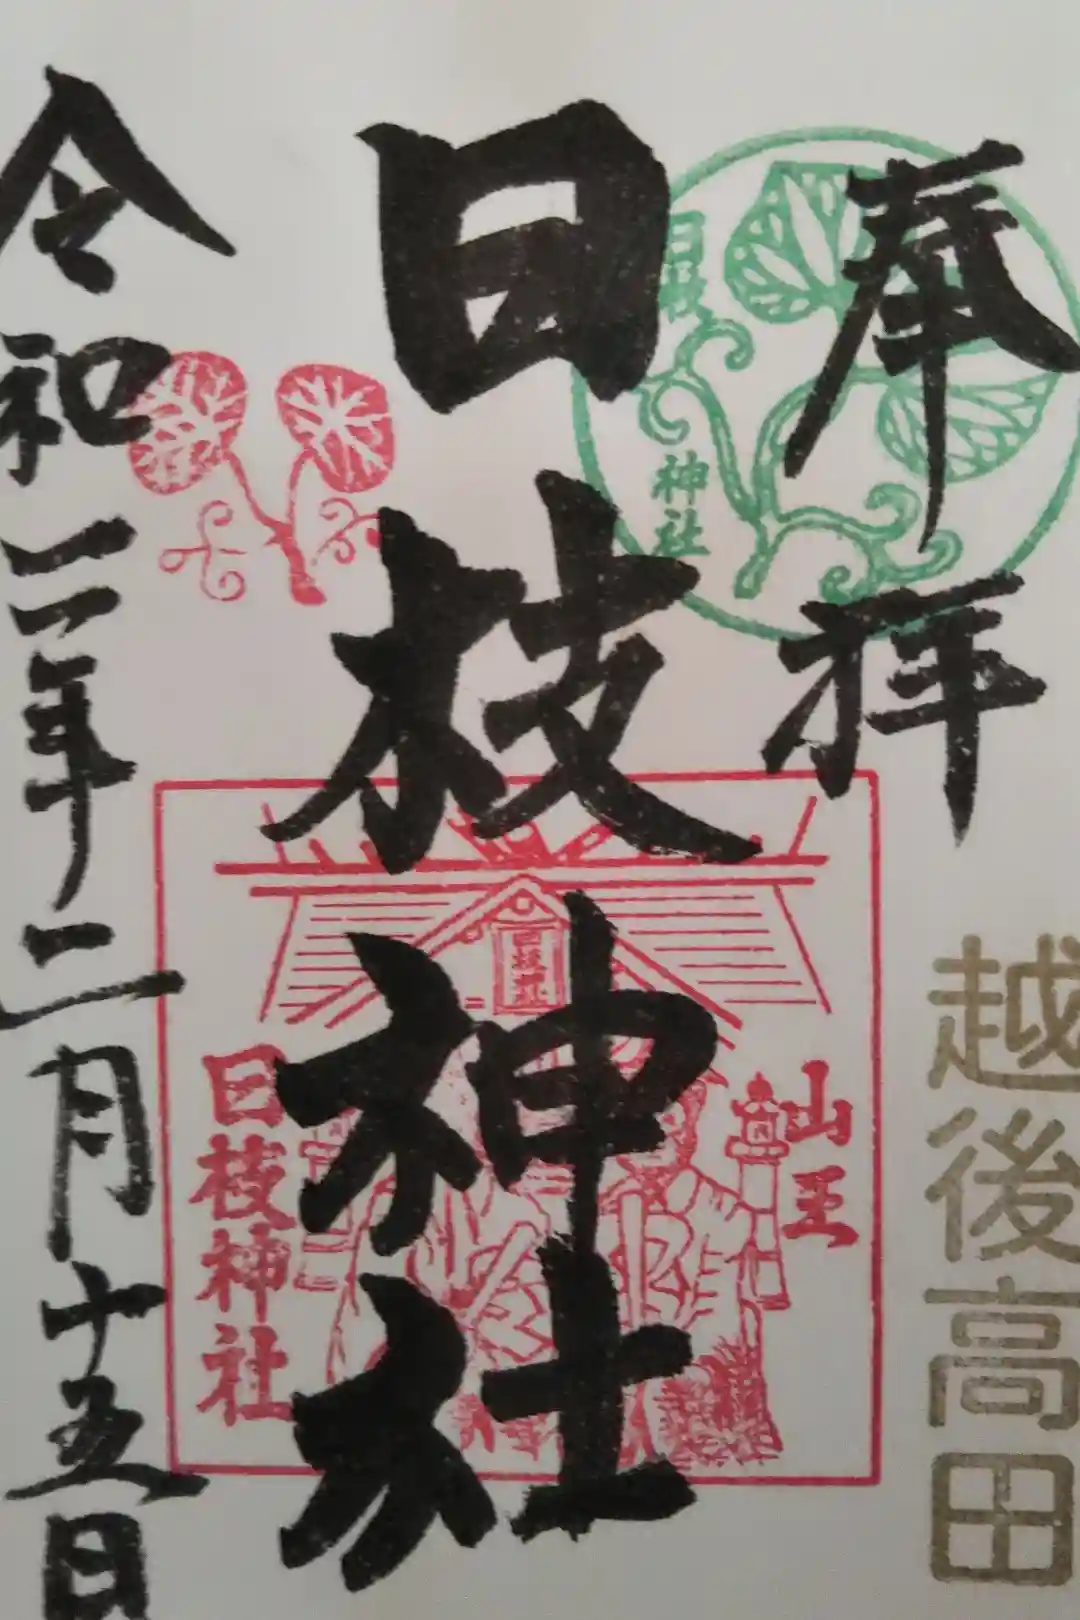 奉拝
越後高田
日枝
神社
日枝神社
山王
日枝神社
日枝神社
令和二年二月十五日